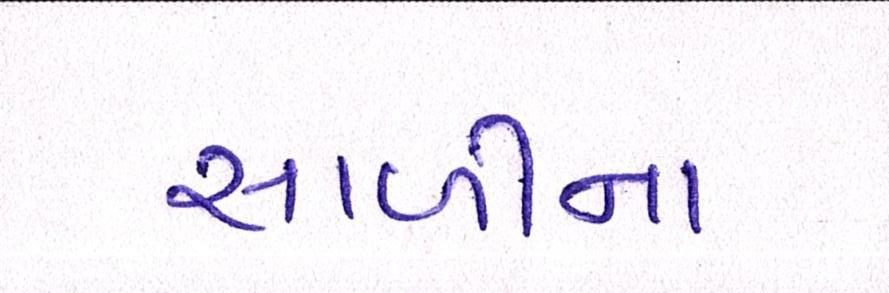 સાળીના